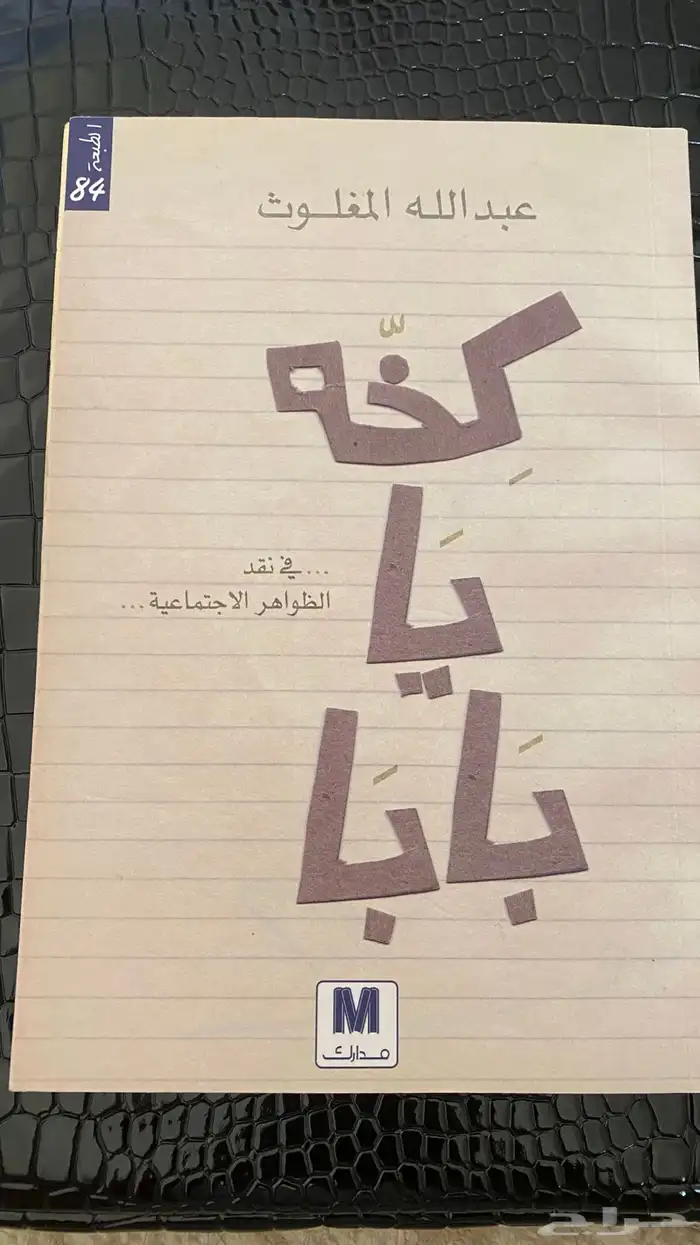 الطبعة
84
عبدالله المغلوث
كِخّه
يَا
بَابَا
...في نقد
الظواهر الاجتماعية...
M
مدارك
حراج